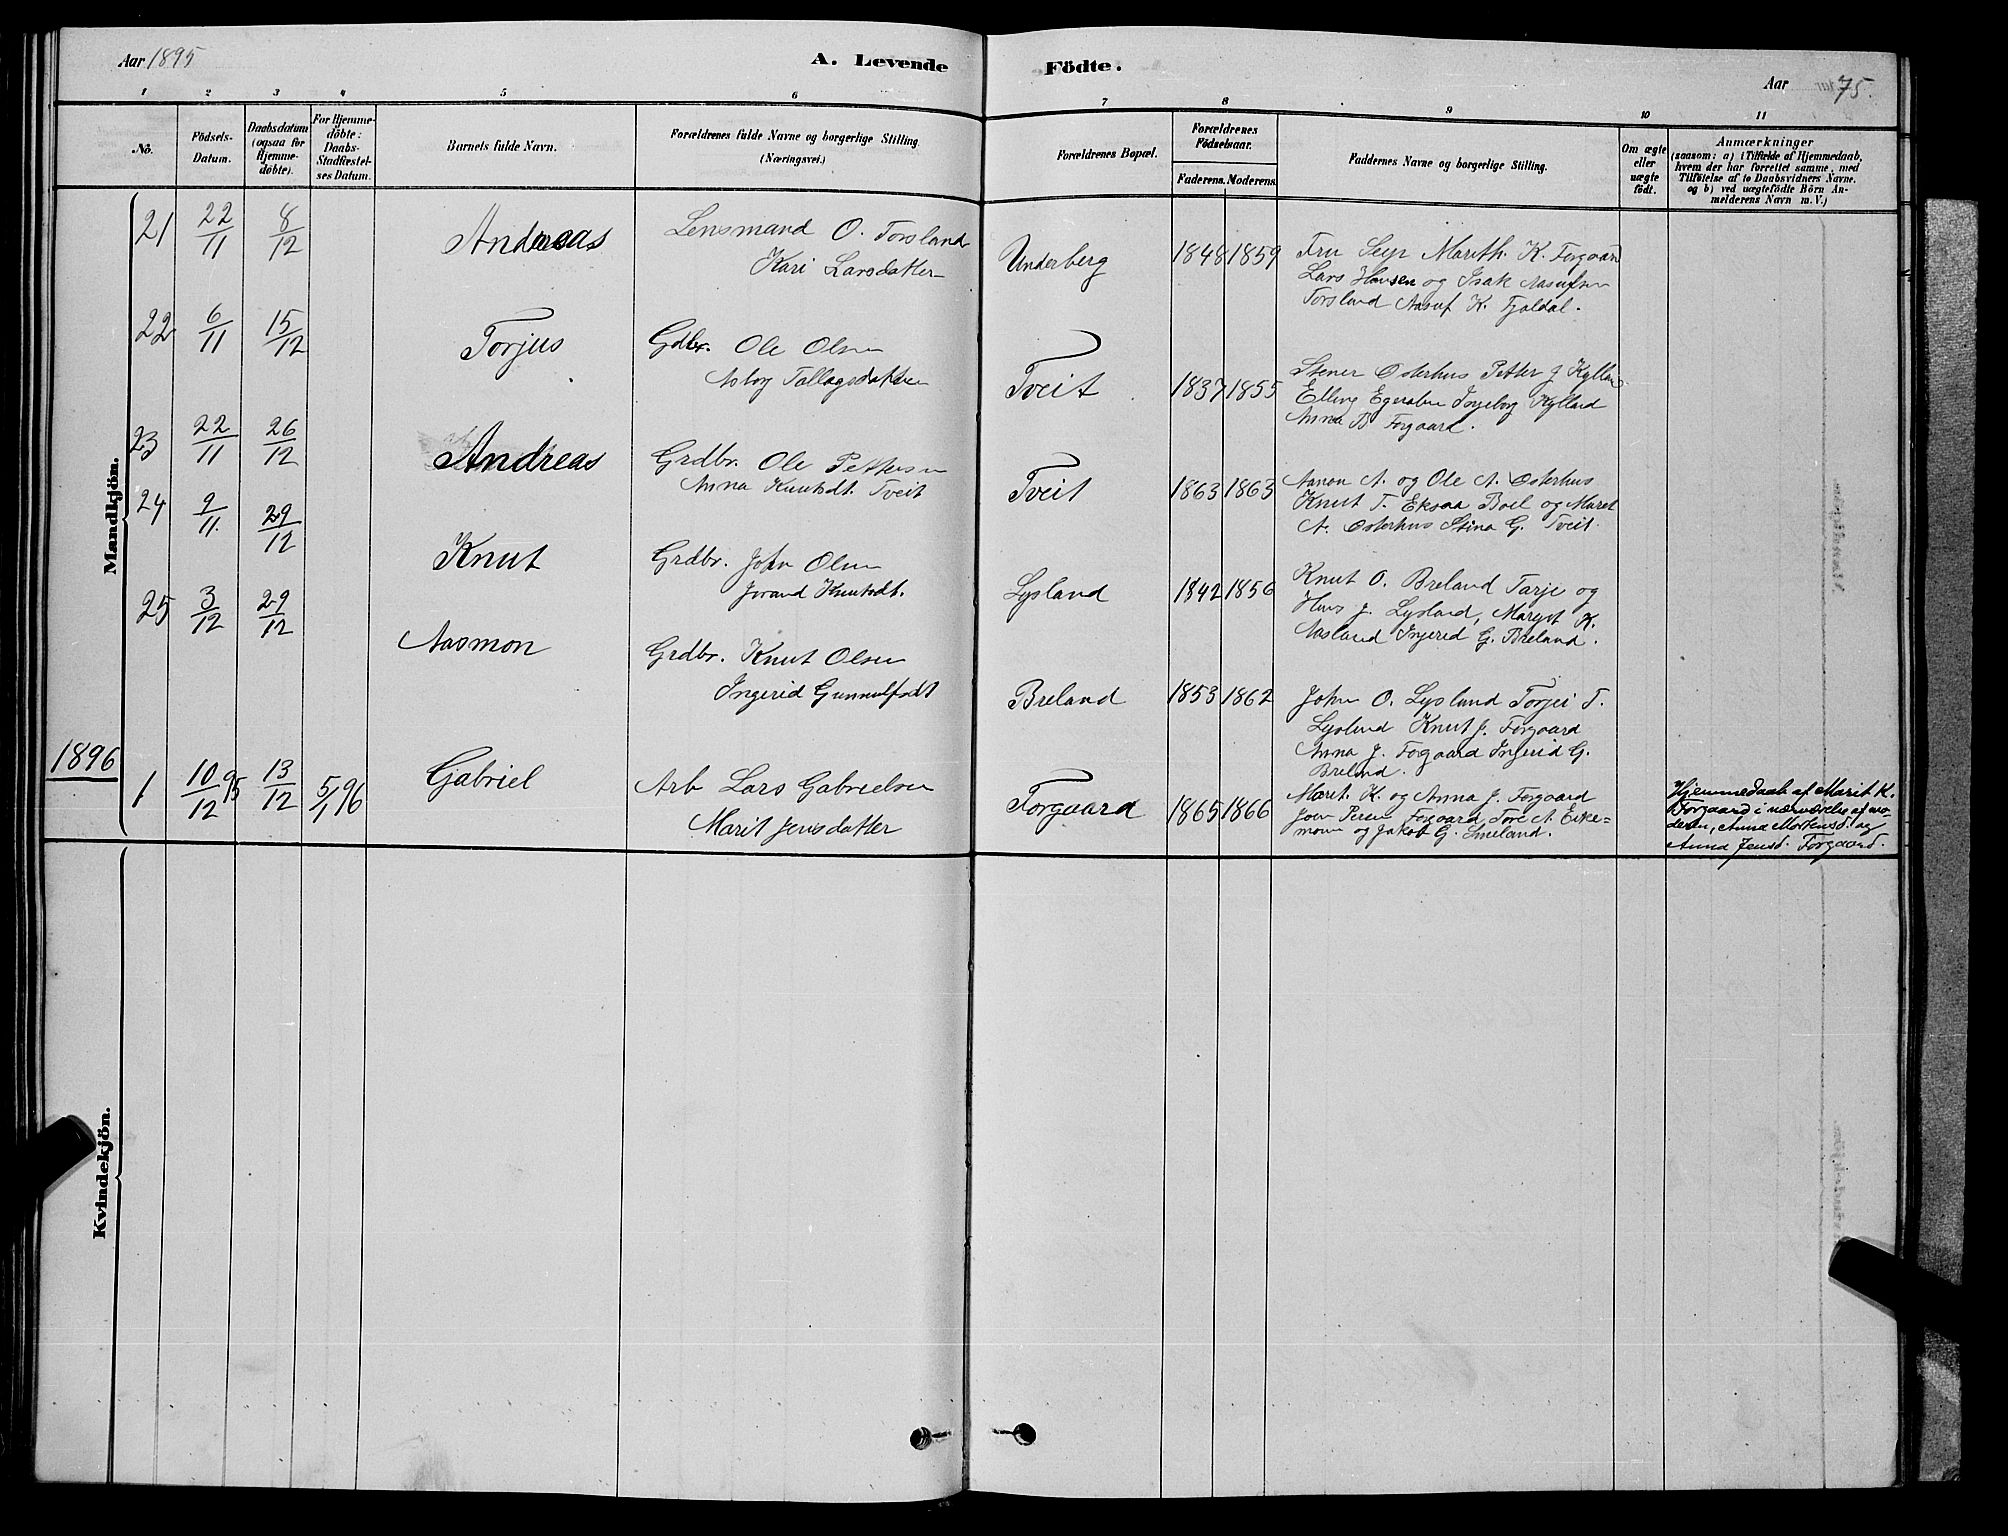 Aar 1895
A. Levende Födte.
Aar 75.
1 2 3 4 5 6 7 8 9 10 11
No.
Födsels-
Datum.
Daabsdatum
(ogsaa for
Hjemme-
döbte).
For Hjemme-
döbte:
Daabs-
Stadfæstel-
ses Datum.
Barnets fulde Navn.
Forældrenes fulde Navne og borgerlige Stilling.
(Næringsvei.)
Forældrenes Bopæl.
Forældrenes
Födselsaar.
Faderens. Moderens.
Faddernes Navne og borgerlige Stilling.
Om ægte
eller
uægte
födt.
Anmærkninger
(saasom: a) i Tilfælde af Hjemmedaab,
hvem der har forrettet samme, med
Tilföielse af to Daabsvidners Navne.
og b) ved uægtefödte Börn An-
melderens Navn m. V.)
Mandkjön.
21 22/11 8/12 Andreas Lensmand O. Torsland
Kari Larsdatter
Underberg 1848 1859 Fru Seyr Marith. K. Forgaard
Lars Hansen og Isak Aasufsen
Torsland Aasuf K. Fjoldal.
22 6/11 15/12 Torjus Gdbr. Ole Olsen
Asborg Tallagsdatter
Tveit 1837 1855 Stener Osterhus Petter J Kylland
Elling Egeraben Ingeborg Kylland
Anna B Forgaard.
23 22/11 26/12 Andreas Grdbr. Ole Pettersen
Anna Knutsdt. Tveit
Tveit 1863 1863 Aanon A. og Ole A. Osterhus
Knut T. Eksaa Boel og Maret
A. Osterhus Stina G. Tveit.
24 9/11. 29/12 Knut Grdbr. John Olsen
Jorand Knutsdt.
Lysland 1842 1856 Knut O. Breland Tarje og
Hans J. Lysland, Margit K.
Aasland Ingerid G. Breland.
25 3/12 29/12 Aasmon Grdbr. Knut Olsen
Ingerid Gunnulfsdt
Breland 1853 1862 John O. Lysland Torjei T.
Lysland Knut J. Forgaard
Anna J. Forgaard Ingerid G.
Breland.
1896
1 10/12 95 13/12 5/1 96 Gabriel Arb Lars Gabrielsen
Marit Jensdatter
Forgaard 1865 1866 Maret. K. og Anna J. Forgaard
Joen Persen Forgaard, Tore A. Eike=
moen og Jakob G. Smeland.
Hjemmedaab af Marit K.
Forgaard i nærværelse af mo-
deren, Anna Mortensd. og
Anna Jensd. Forgaard.
Kvindekjön.